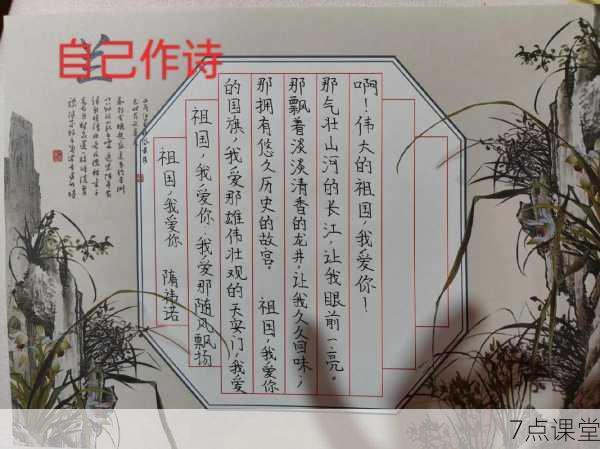 自己作诗
兰
祖国，我爱你 隋祎诺
祖国，我爱你，我爱那随风飘扬
的国旗，我爱那雄伟壮观的天安门，我爱
那拥有悠久历史的故宫。 祖国，我爱你
那飘着淡淡清香的龙井，让我久久回味，
那气壮山河的长江，让我眼前一亮。
啊！伟大的祖国，我爱你！
7点课堂